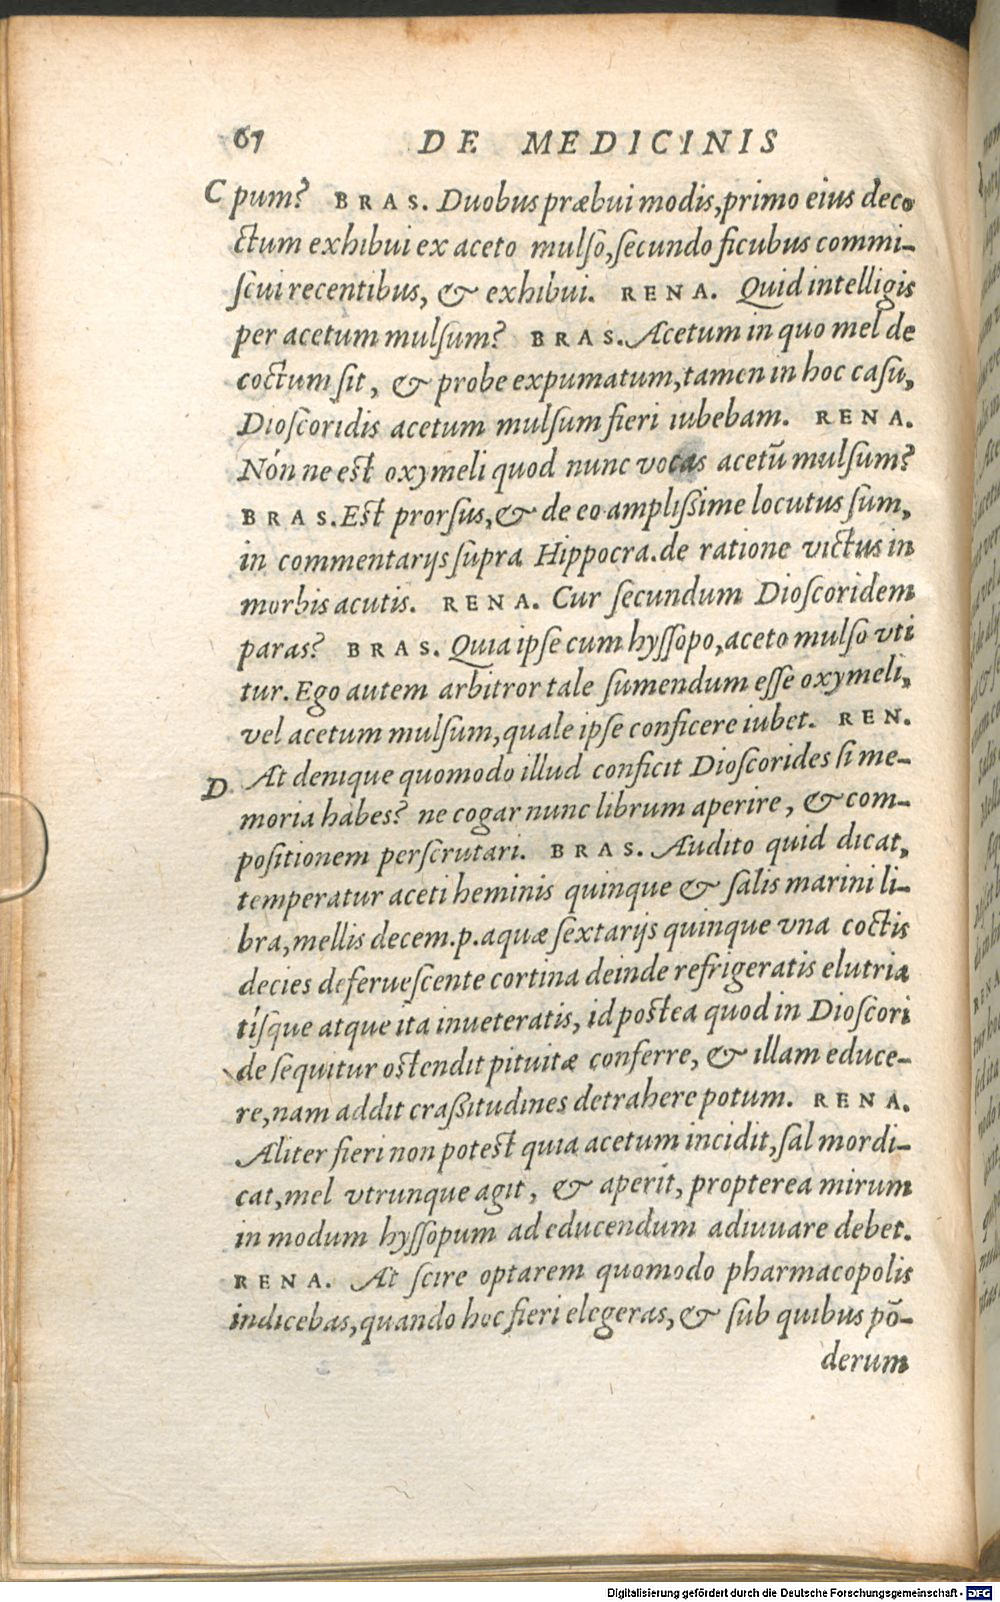 67 DE MEDICINIS
C pum? BRAS. Duobus præbui modis, primo eius deco
ctum exhibui ex aceto mulſo, ſecundo ficubus commi-
ſcui recentibus, & exhibui. RENA. Quid intelligis
per acetum mulſum? BRAS. Acetum in quo mel de
coctum ſit, & probe expumatum, tamen in hoc caſu,
Dioſcoridis acetum mulſum fieri iubebam. RENA.
Nón ne eſt oxymeli quod nunc vocas acetū mulſum?
BRAS. Eſt prorſus, & de eo ampliſsime locutus ſum,
in commentarijs ſupra Hippocra. de ratione victus in
morbis acutis. RENA. Cur ſecundum Dioſcoridem
paras? BRAS. Quia ipſe cum hyſſopo, aceto mulſo vti
tur. Ego autem arbitror tale ſumendum eſſe oxymeli,
vel acetum mulſum, quale ipſe conficere iubet. REN.
D. At denique quomodo illud conficit Dioſcorides ſi me-
moria habes? ne cogar nunc librum aperire, & com-
poſitionem perſcrutari. BRAS. Audito quid dicat,
temperatur aceti heminis quinque & ſalis marini li-
bra, mellis decem. p. aquæ ſextarijs quinque vna coctis
decies deferueſcente cortina deinde refrigeratis elutria
tíſque atque ita inueteratis, id poſtea quod in Dioſcori
de ſequitur oſtendit pituitæ conferre, & illam educe-
re, nam addit craſsitudines detrahere potum. RENA.
Aliter fieri non poteſt quia acetum incidit, ſal mordi-
cat, mel vtrunque agit, & aperit, propterea mirum
in modum hyſſopum ad educendum adiuuare debet.
RENA. At ſcire optarem quomodo pharmacopolis
indicebas, quando hoc fieri elegeras, & ſub quibus pō-
derum
Digitalisierung gefördert durch die Deutsche Forschungsgemeinschaft - DFG